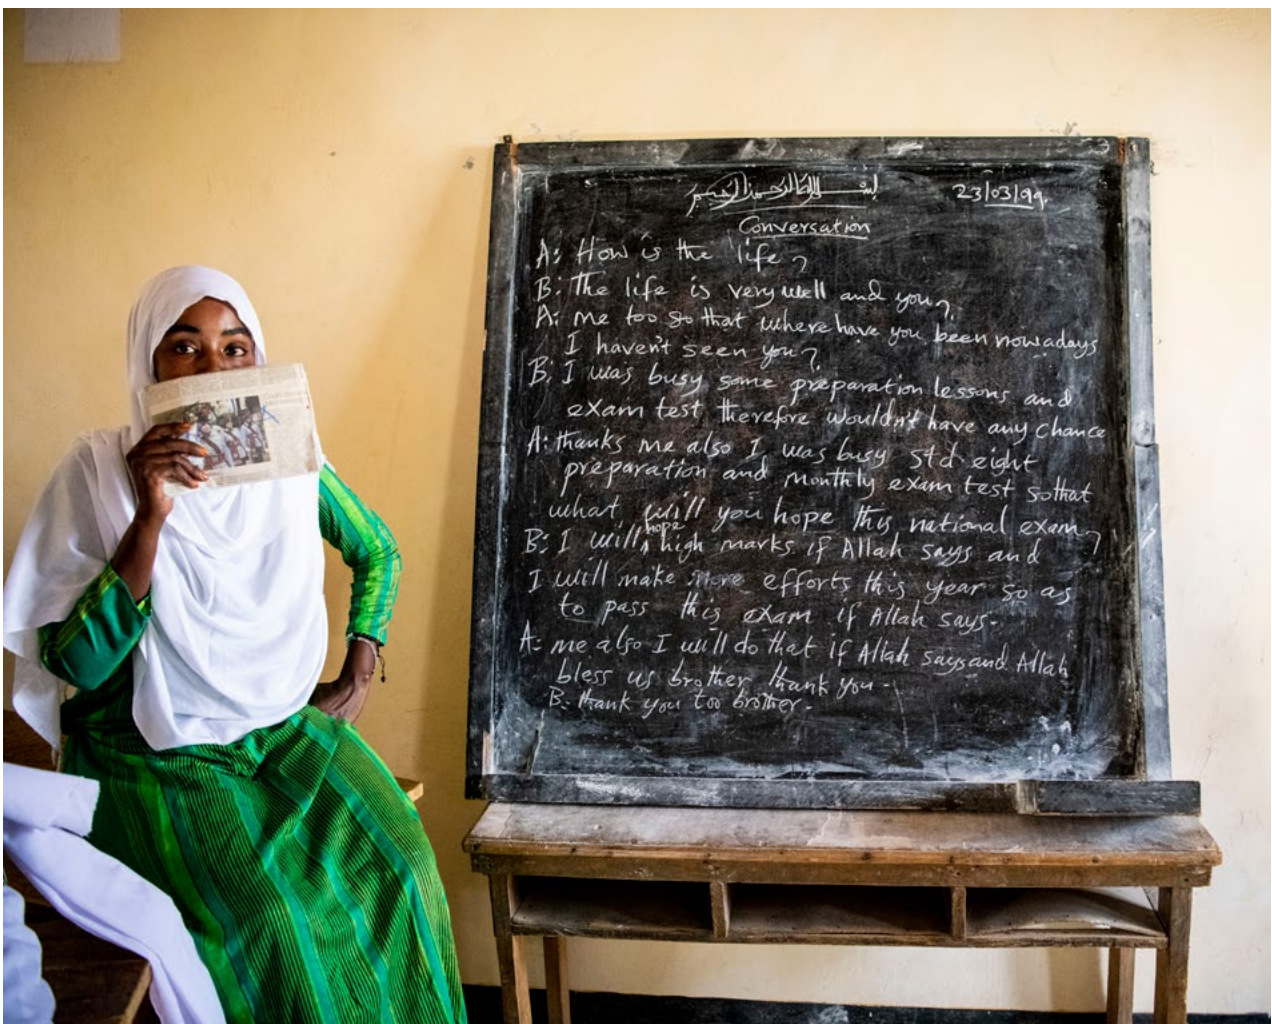 بسم الله الرحمن الرحيم
23/03/99
Conversation
A: How is the life?
B: The life is very well and you?
A: me too so that where have you been nowadays
I haven't seen you?
B: I was busy some preparation lessons and
exam test therefore wouldn't have any chance
A: thanks me also I was busy std eight
preparation and monthly exam test so that
what will you hope this national exam?
B: I will hope high marks if Allah says and
I will make more efforts this year so as
to pass this exam if Allah says.
A: me also I will do that if Allah says and Allah
bless us brother thank you.
B: thank you too brother.